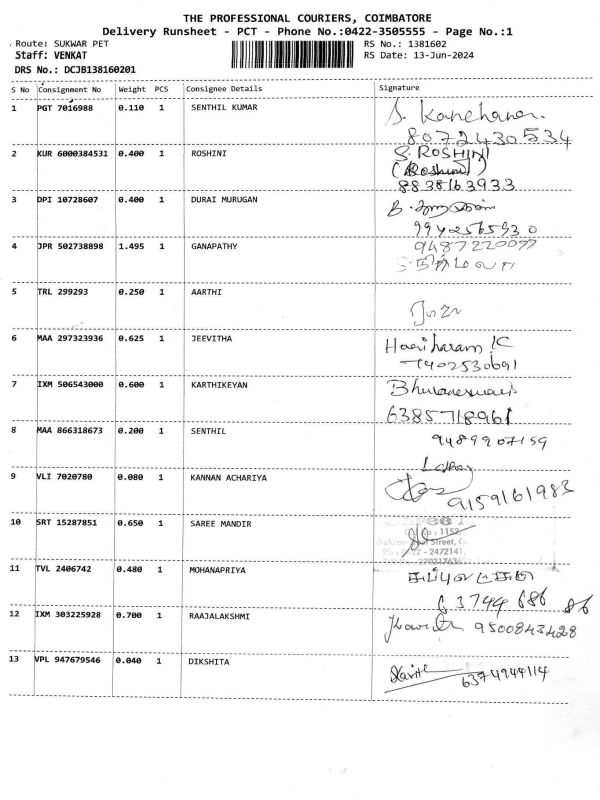 THE PROFESSIONAL COURIERS, COIMBATORE
Delivery Runsheet - PCT - Phone No.:0422-3505555 - Page No.:1
Route: SUKWAR PET RS No.: 1381602
Staff: VENKAT RS Date: 13-Jun-2024
DRS No.: DCJB138160201
S No Consignment No Weight PCS Consignee Details Signature
1 PGT 7016988 0.110 1 SENTHIL KUMAR S. Kanchana
8072430534
2 KUR 6000384531 0.400 1 ROSHINI S. ROSHINI
(Roshini)
8838163933
3 DPI 10728607 0.400 1 DURAI MURUGAN
9942565930
4 JPR 502738898 1.495 1 GANAPATHY 9487220077
5 TRL 299293 0.250 1 AARTHI
6 MAA 297323936 0.625 1 JEEVITHA Hariharam K
7402530691
7 IXM 506543000 0.600 1 KARTHIKEYAN Bhuvaneswari
6385718961
8 MAA 866318673 0.200 1 SENTHIL 9489907159
9 VLI 7020780 0.080 1 KANNAN ACHARIYA
9159161983
10 SRT 15287851 0.650 1 SAREE MANDIR
1152,
Street,
- 2472141,
11 TVL 2406742 0.480 1 MOHANAPRIYA
63744 686 86
12 IXM 303225928 0.700 1 RAAJALAKSHMI 9500843428
13 VPL 947679546 0.040 1 DIKSHITA 6374944114